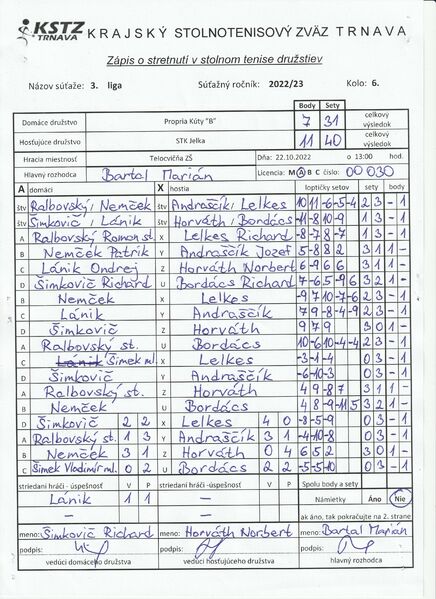 KSTZ TRNAVA KRAJSKÝ STOLNOTENISOVÝ ZVÄZ TRNAVA
Zápis o stretnutí v stolnom tenise družstiev
Názov súťaže: 3. liga Súťažný ročník: 2022/23 Kolo: 6.
Body Sety
Domáce družstvo Propria Kúty "B" 7 31 celkový výsledok
Hosťujúce družstvo STK Jelka 11 40 celkový výsledok
Hracia miestnosť Telocvičňa ZŠ Dňa: 22.10.2022 o 13:00 hod.
Hlavný rozhodca Bartal Marián Licencia: M A B C číslo: 00 030
A domáci X hostia loptičky setov sety body
štv Ralbovský/Nemček štv Andraščík/Lelkes 10 11 -6 -5 -4 2 3 - 1
štv Šimkovič/Lánik štv Horváth/Bordács -11 -8 10 -9 1 3 - 1
A Ralbovský Roman st. X Lelkes Richard -8 -7 8 -7 1 3 - 1
B Nemček Patrik Y Andraščík Jozef -5 8 8 2 3 1 1 -
C Lánik Ondrej Z Horváth Norbert 6 -9 6 6 3 1 1 -
D Šimkovič Richard U Bordács Richard -7 -6 5 -9 6 3 2 1 -
B Nemček X Lelkes -9 7 10 -7 -6 2 3 - 1
C Lánik Y Andraščík 7 9 -8 -4 -9 2 3 - 1
D Šimkovič Z Horváth 9 7 9 3 0 1 -
A Ralbovský st. U Bordács 10 -6 10 -4 -4 2 3 - 1
C Šimek ml. X Lelkes -3 -1 -4 0 3 - 1
D Šimkovič Y Andraščík -6 -10 -3 0 3 - 1
A Ralbovský st. Z Horváth 4 9 -8 7 3 1 1 -
B Nemček U Bordács 4 8 -9 -11 5 3 2 1 -
D Šimkovič 2 2 X Lelkes 4 0 -8 -5 -9 0 3 - 1
A Ralbovský st. 1 3 Y Andraščík 3 1 -4 -10 -8 0 3 - 1
B Nemček 3 1 Z Horváth 0 4 6 5 2 3 0 1 -
C Šimek Vladimír ml. 0 2 U Bordács 2 2 -5 -5 -10 0 3 - 1
striedaní hráči - úspešnosť V P striedaní hráči - úspešnosť V P Spolu body a sety
Lánik 1 1 — Námietky Áno Nie
— — ak áno, tak pokračujte na 2. strane
meno: Šimkovič Richard meno: Horváth Norbert meno: Bartal Marián
podpis: podpis: podpis:
vedúci domáceho družstva vedúci hosťujúceho družstva hlavný rozhodca